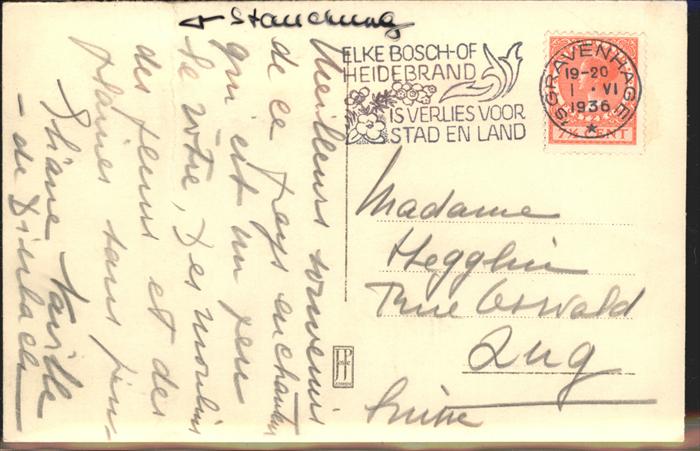 + Stauchung
ELKE BOSCH-OF
HEIDEBRAND
IS VERLIES VOOR
STAD EN LAND
'SGRAVENHAGE
19-20
1 · VI
1936
7½ CENT
Meilleurs souvenirs
de ce pays enchanteur
qui est un peu
le vôtre, des moulins
des fleurs et des
plaines sans fin -
Madame
Hegglin
Rue Oswald
Zug
Suisse